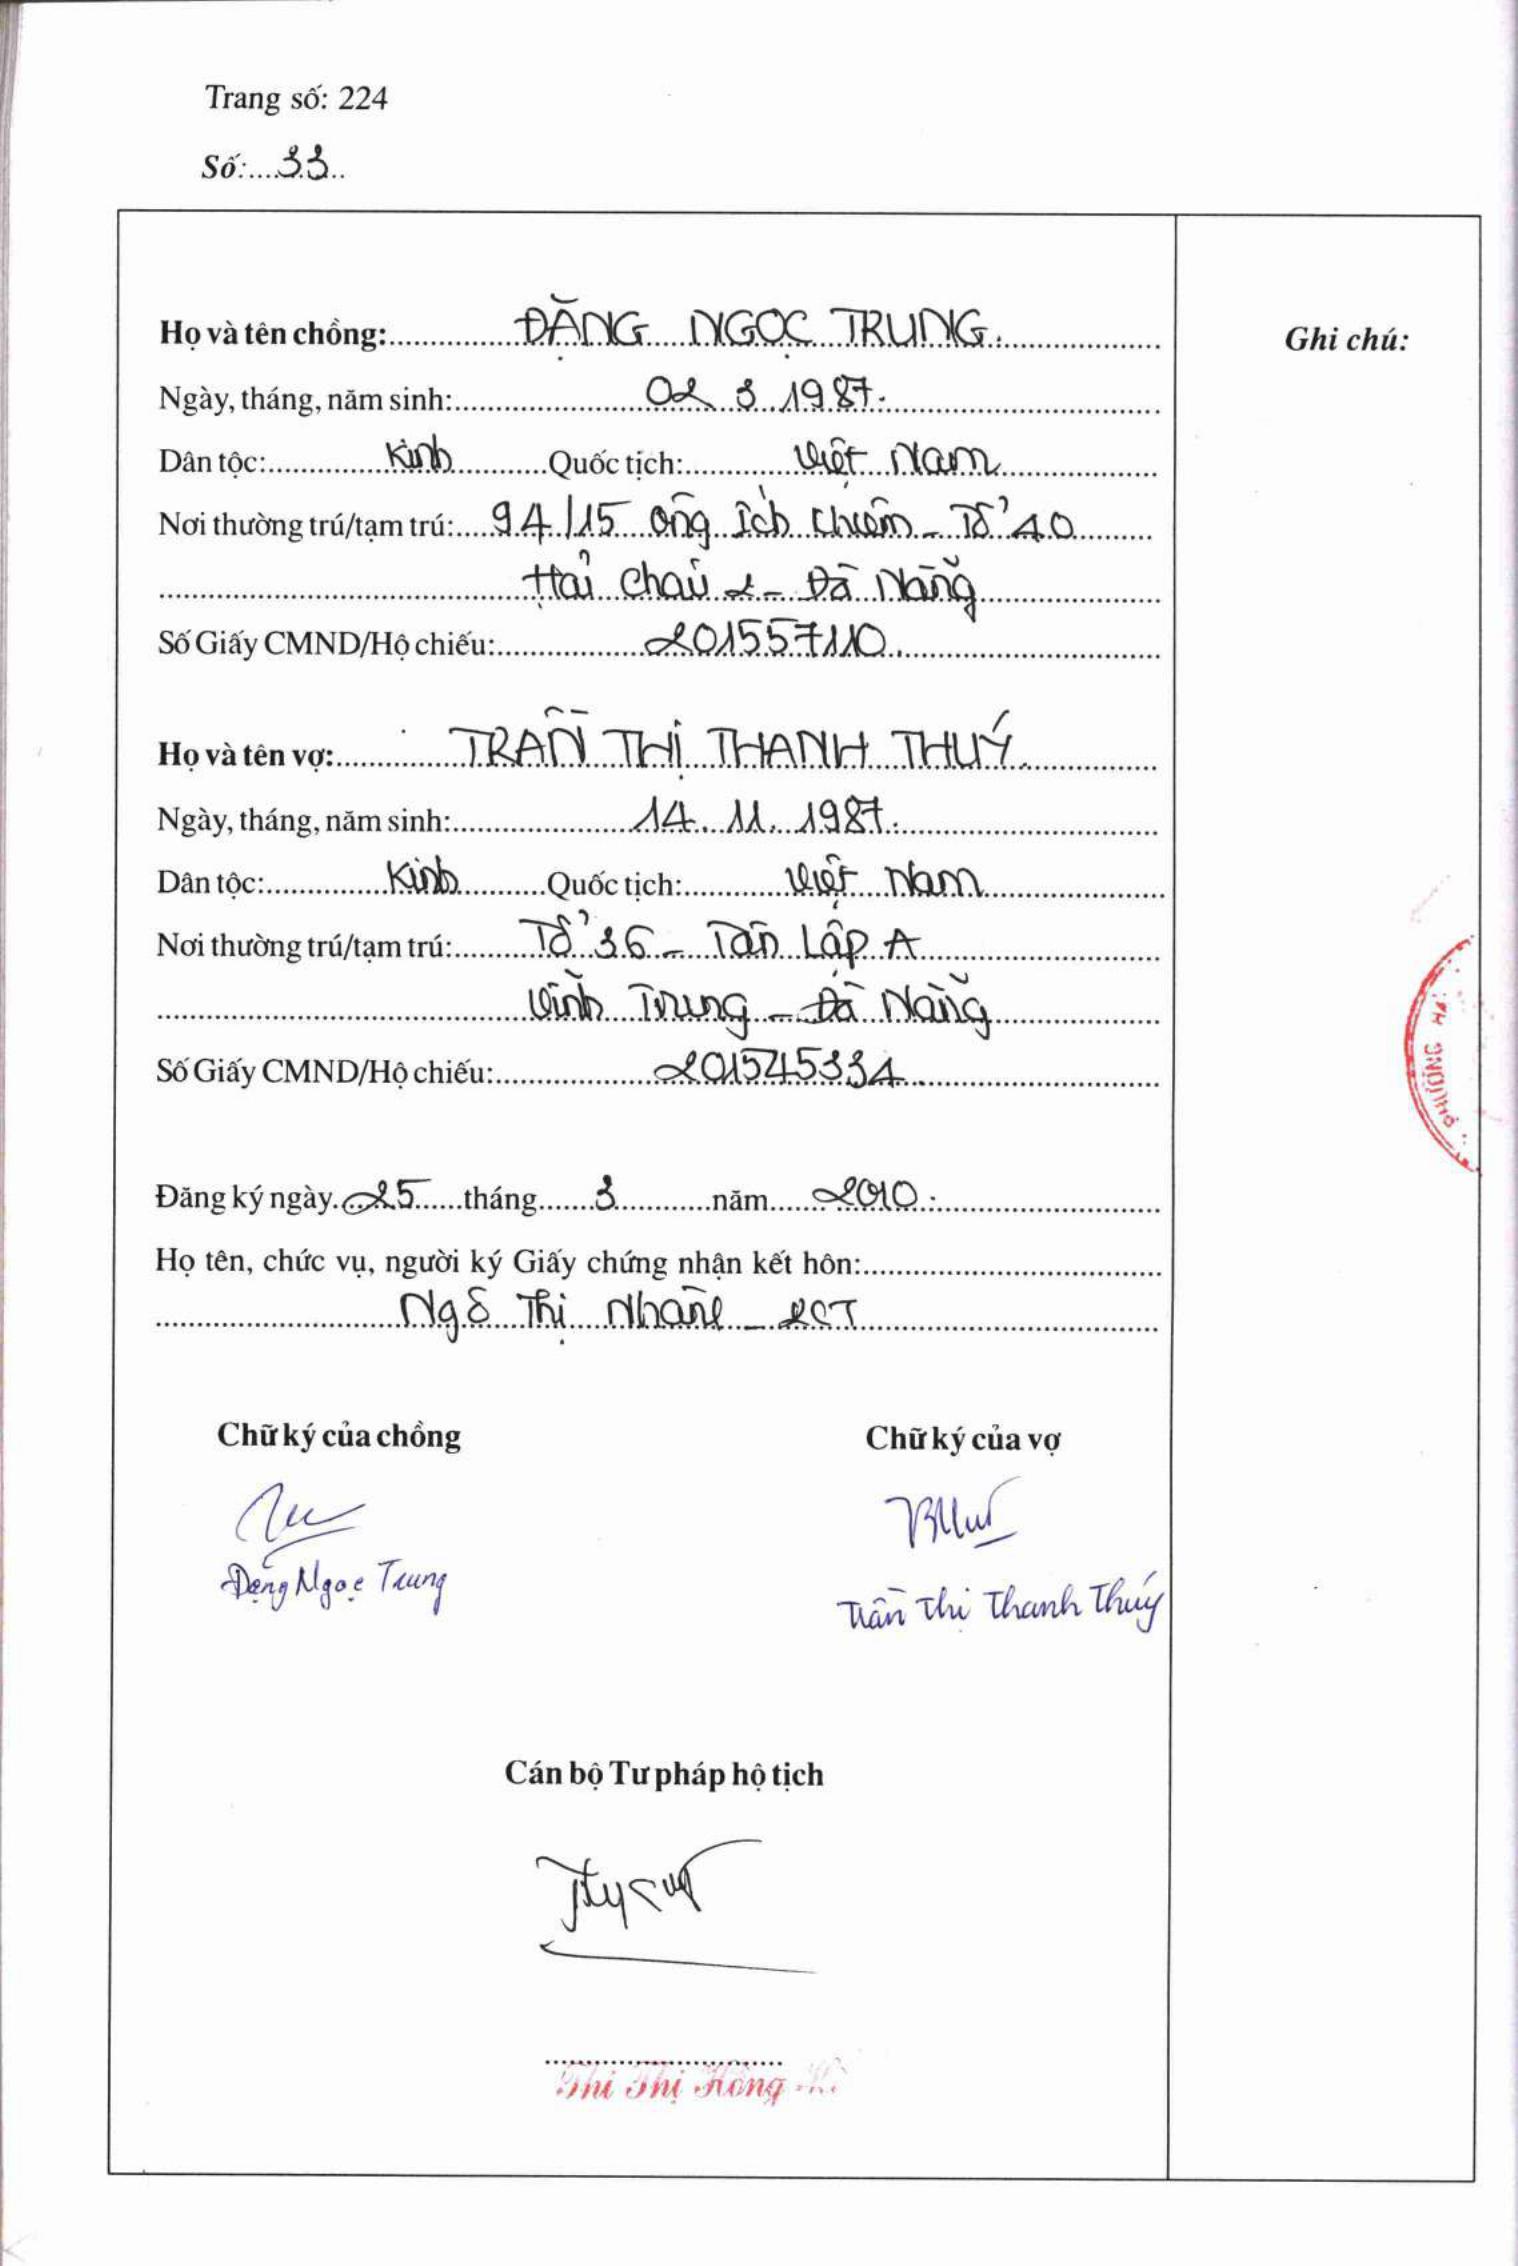 Trang số: 224
Số: 33
Họ và tên chồng: ĐẶNG NGỌC TRUNG
Ghi chú:
Ngày, tháng, năm sinh: 02 3 1987
Dân tộc: Kinh Quốc tịch: Việt Nam
Nơi thường trú/tạm trú: 94/15 Ông Ích Khiêm - Tổ 40
Hải Châu 2 - Đà Nẵng
Số Giấy CMND/Hộ chiếu: 201557110
Họ và tên vợ: TRẦN THỊ THANH THUÝ
Ngày, tháng, năm sinh: 14. 11. 1987
Dân tộc: Kinh Quốc tịch: Việt Nam
Nơi thường trú/tạm trú: Tổ 36 - Tân Lập A
Vĩnh Trung - Đà Nẵng
Số Giấy CMND/Hộ chiếu: 201545334
PHƯỜNG
Đăng ký ngày 25 tháng 3 năm 2010
Họ tên, chức vụ, người ký Giấy chứng nhận kết hôn:
Ngô Thị - PCT
Chữ ký của chồng
Chữ ký của vợ
Đặng Ngọc Trung
Trần Thị Thanh Thúy
Cán bộ Tư pháp hộ tịch
Thi Thị Hồng